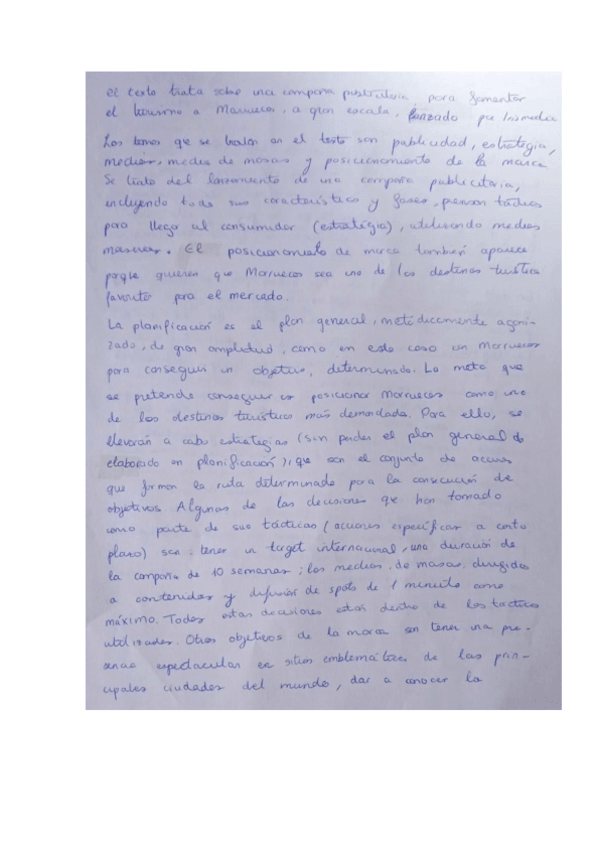 El texto trata sobre una campaña publicitaria para fomentar
el turismo a Marruecos, a gran escala, lanzado por los medios
Los temas que se tratan en el texto son publicidad, estrategia,
medios, medios de masas y posicionamiento de la marca
Se trata del lanzamiento de una campaña publicitaria,
incluyendo todas sus características y fases, piensan tácticas
para llegar al consumidor (estrategia), utilizando medios
masivos. El posicionamiento de marca también aparece
porque quieren que Marruecos sea uno de los destinos turísticos
favoritos para el mercado.
La planificación es el plan general, metódicamente organi-
zado, de gran amplitud, como en este caso en Marruecos
para conseguir un objetivo, determinado. La meta que
se pretende conseguir es posicionar Marruecos como uno
de los destinos turísticos más demandado. Para ello, se
llevarán a cabo estrategias (sin perder el plan general
elaborado en planificación), que son el conjunto de acciones
que forman la ruta determinada para la consecución de
objetivos. Algunas de las decisiones que han tomado
como parte de sus tácticas (acciones específicas a corto
plazo) son: tener un target internacional, una duración de
la campaña de 10 semanas; los medios de masas, dirigidos
a contenidos y difusión de spots de 1 minuto como
máximo. Todas estas decisiones están dentro de las tácticas
utilizadas. Otros objetivos de la marca son tener una pre-
sencia espectacular en sitios emblemáticos de las prin-
cipales ciudades del mundo, dar a conocer la